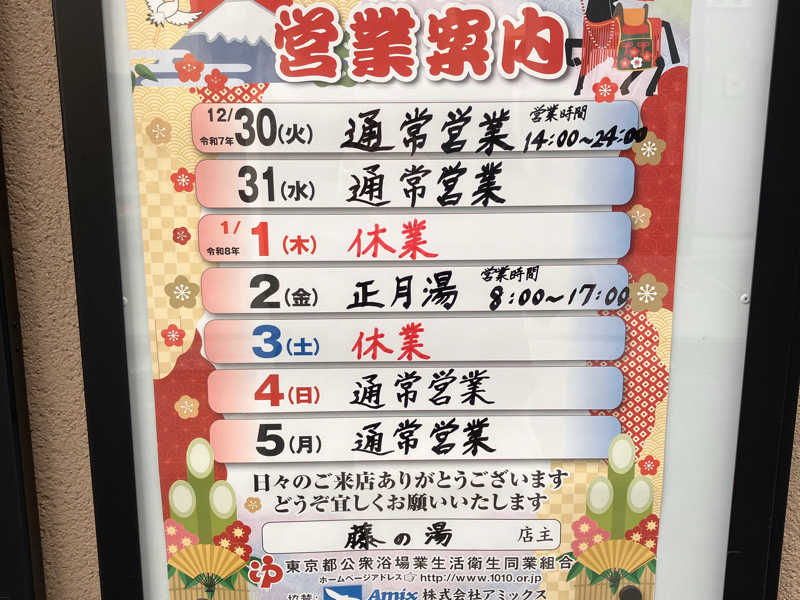 営業案内
12/30(火) 令和7年 通常営業 営業時間 14:00~24:00
31(水) 通常営業
1/1(木) 令和8年 休業
2(金) 正月湯 営業時間 8:00~17:00
3(土) 休業
4(日) 通常営業
5(月) 通常営業
日々のご来店ありがとうございます
どうぞ宜しくお願いいたします
藤の湯 店主
ゆ 東京都公衆浴場業生活衛生同業組合
ホームページアドレス☞ http://www.1010.or.jp
協賛: Amix 株式会社アミックス